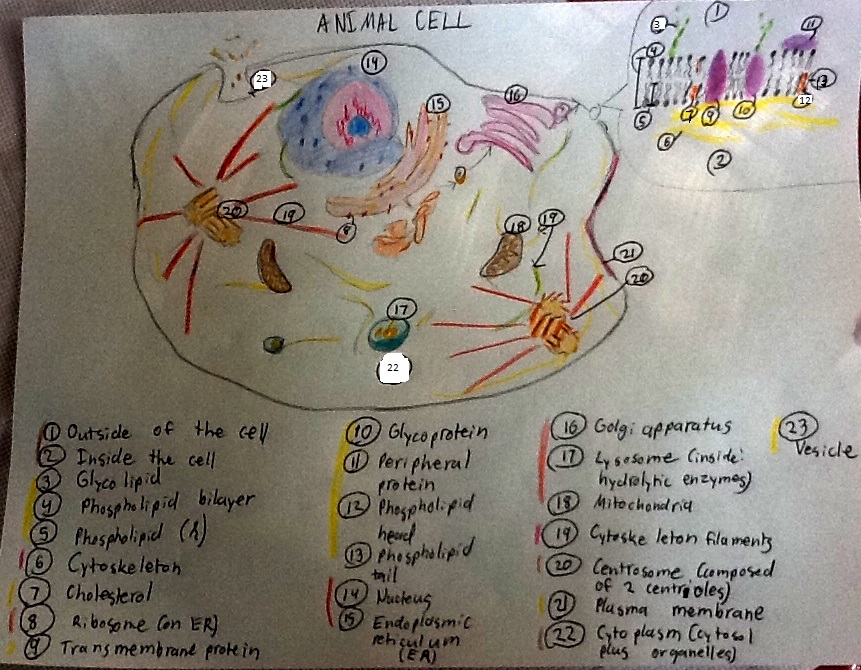 ANIMAL CELL
1
3
11
4
13
12
5
7
9
10
6
2
23
14
15
16
20
19
8
18
19
21
20
17
22
1 Outside of the cell
2 Inside the cell
3 Glycolipid
4 Phospholipid bilayer
5 Phospholipid
6 Cytoskeleton
7 Cholesterol
8 Ribosome (on ER)
9 Transmembrane protein
10 Glycoprotein
11 Peripheral
protein
12 Phospholipid
head
13 Phospholipid
tail
14 Nucleus
15 Endoplasmic
reticulum
(ER)
16 Golgi apparatus
17 Lysosome (inside:
hydrolytic enzymes)
18 Mitochondria
19 Cytoskeleton filaments
20 Centrosome (composed
of 2 centrioles)
21 Plasma membrane
22 Cytoplasm (cytosol
plus organelles)
23
Vesicle